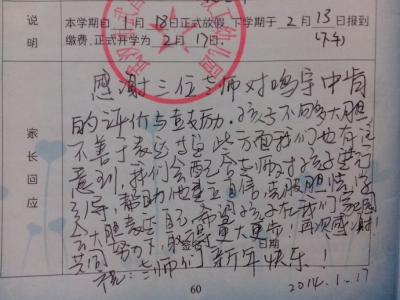 说明
本学期自 1 月 18 日正式放假,下学期于 2 月 13 日报到
缴费,正式开学为 2 月 17 日。
家长回应
感谢三位老师对鸣宇中肯
的评价与鼓励。孩子不够大胆,
不善于表达等,这些方面我们也有注
意到,我们会配合老师对孩子进行
引导,帮助他建立自信,克服胆怯,学
会大胆表达自己,希望孩子在我们
共同努力下,取得更大更进步!再次感谢!
日期
祝:老师们新年快乐!
2014.1.17
60